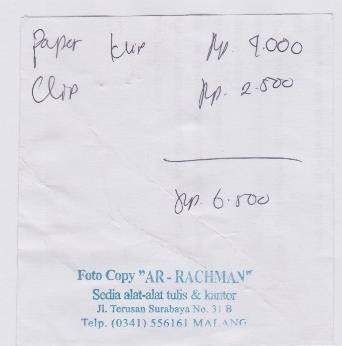 Paper klip Rp. 4.000
Clip Rp.
Rp.
Foto Copy "AR - RACHMAN"
Sedia alat-alat tulis & kantor
Jl. Terusan Surabaya No. 31 B
Telp. (0341) 556161 MALANG